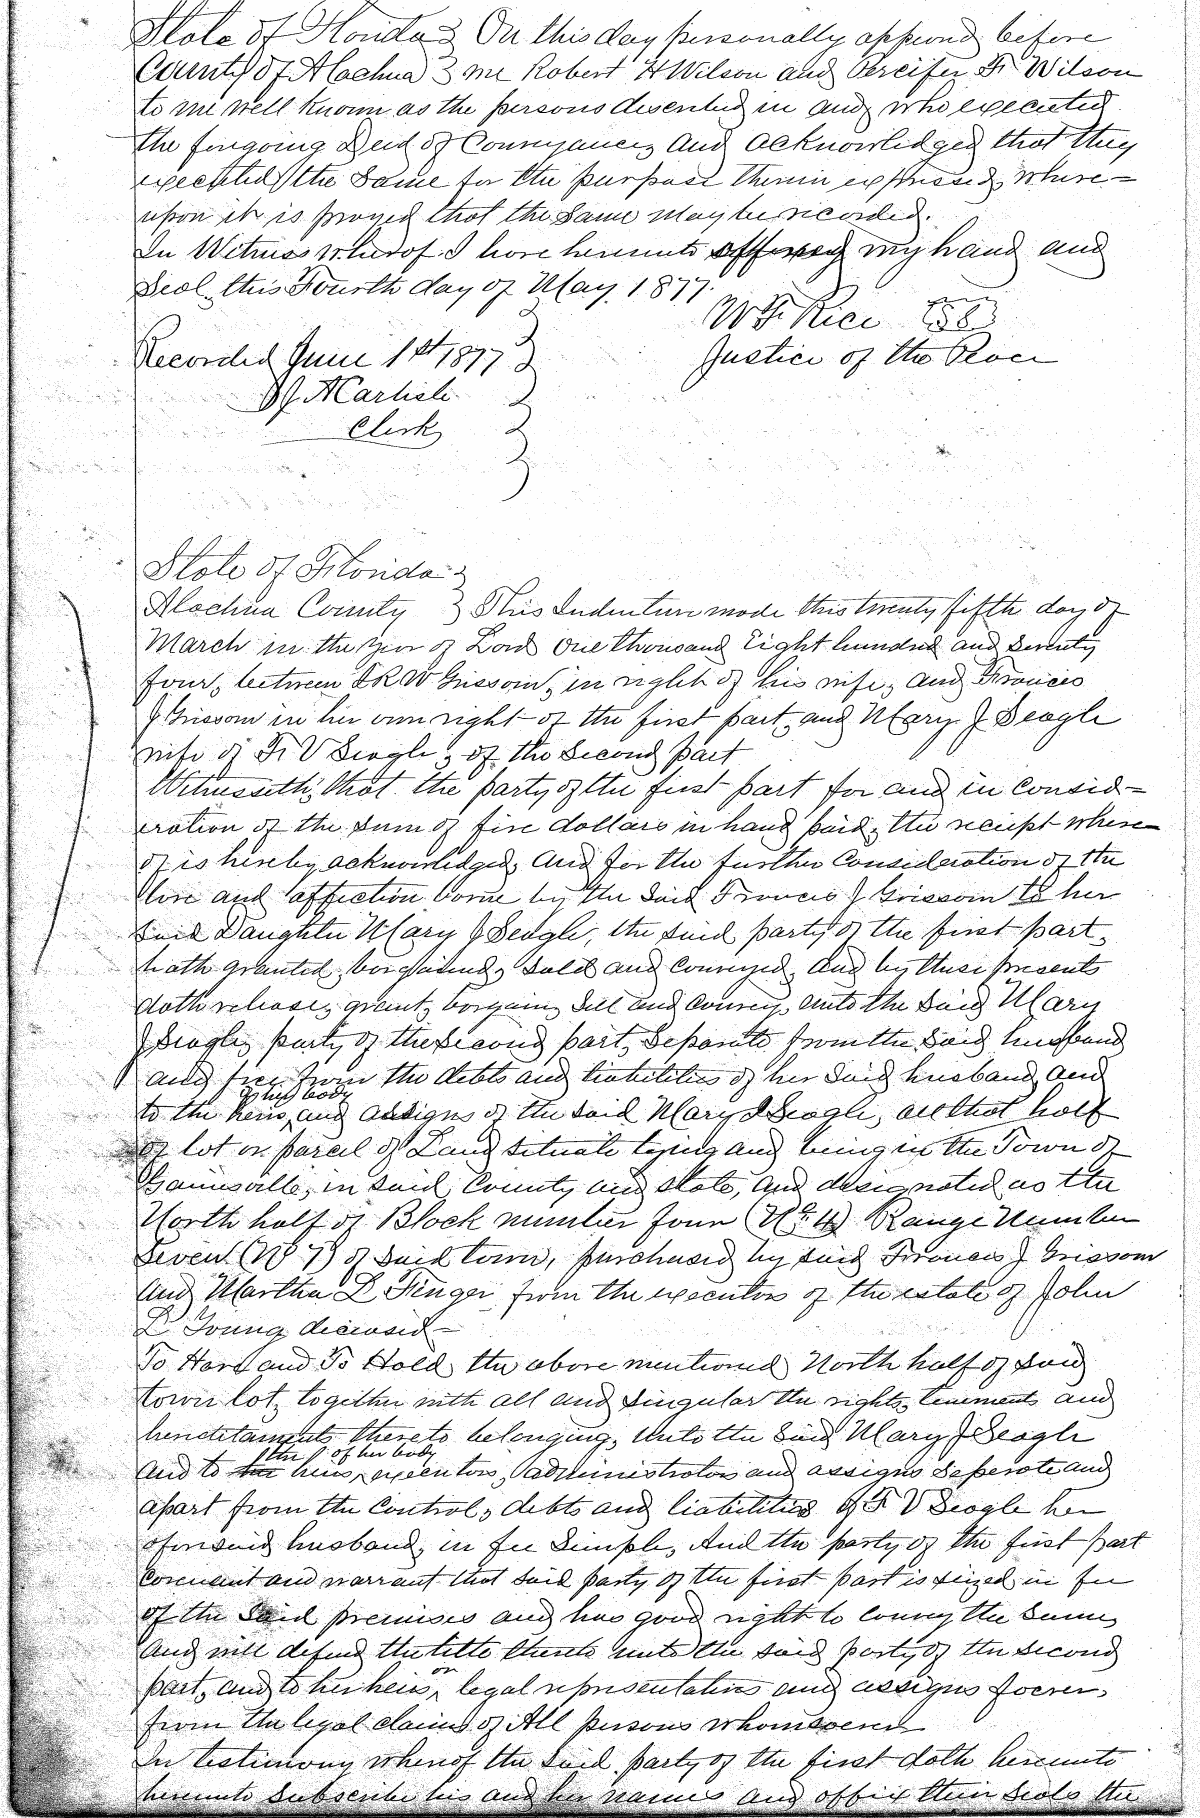 State of Florida } On this day personally appeared before
County of Alachua } me Robert H Wilson and Percifer F Wilson
to me well known as the persons described in and who executed
the foregoing Deed of Conveyance, and acknowledged that they
executed the same for the purpose therein expressed, where=
upon it is prayed that the same may be recorded.
In Witness whereof I have hereunto my hand and
Seal, this Fourth day of May, 1877.
W F Rice
Justice of the Peace
Recorded June 1st 1877
J A Carlisle
Clerk
State of Florida }
Alachua County } This Indenture made this twenty fifth day of
March in the year of Lord One thousand Eight hundred and seventy
four, between R W Grissom, in right of his wife, and Francis
J Grissom in her own right of the first part, and Mary J Seagle
wife of F V Seagle, of the Second part
Witnesseth, that the party of the first part for and in consid=
eration of the sum of five dollars in hand paid, the reciept where=
of is hereby acknowledged, and for the further consideration of the
love and affection borne by the said Francis J Grissom to her
said Daughter Mary J Seagle, the said party of the first part,
hath granted, bargained, sold and conveyed, and by these presents
doth release, grant, bargain, sell and convey, unto the said Mary
J Seagle, party of the second part, separate from the said husband
and free from the debts and liabilities of her said husband, and
of her body
to the heirs, and assigns of the said Mary J Seagle, all that half
of lot or parcel of Land situate lying and being in the Town of
Gainesville, in said County and state, and designated as the
North half of Block number four (No. 4) Range Number
Seven (No 7) of said town, purchased by said Francis J Grissom
and Martha L Finger from the executors of the estate of John
L Young deceased—
To Have and To Hold, the above mentioned North half of said
town lot, together with all and singular the rights, tenements and
hereditaments thereto belonging, unto the said Mary J Seagle
the of her body
and to her heirs, executors, administrators and assigns seperate and
apart from the control, debts and liabilities of F V Seagle her
aforesaid husband, in fee simple, And the party of the first part
covenant and warrant that said party of the first part is seized in fee
of the said premises and has good right to convey the same,
and will defend the title thereto unto the said party of the second
or
part, and to her heirs, legal representatives and assigns foever,
from the legal claims of All persons whomsoever
In testimony whereof the said party of the first doth hereunto
hereunto subscribe his and her names and affix their seals the